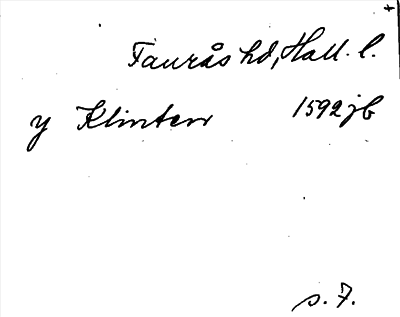 Faurås hd, Hall. l.
y Klinten 1592 jb
s. 7.